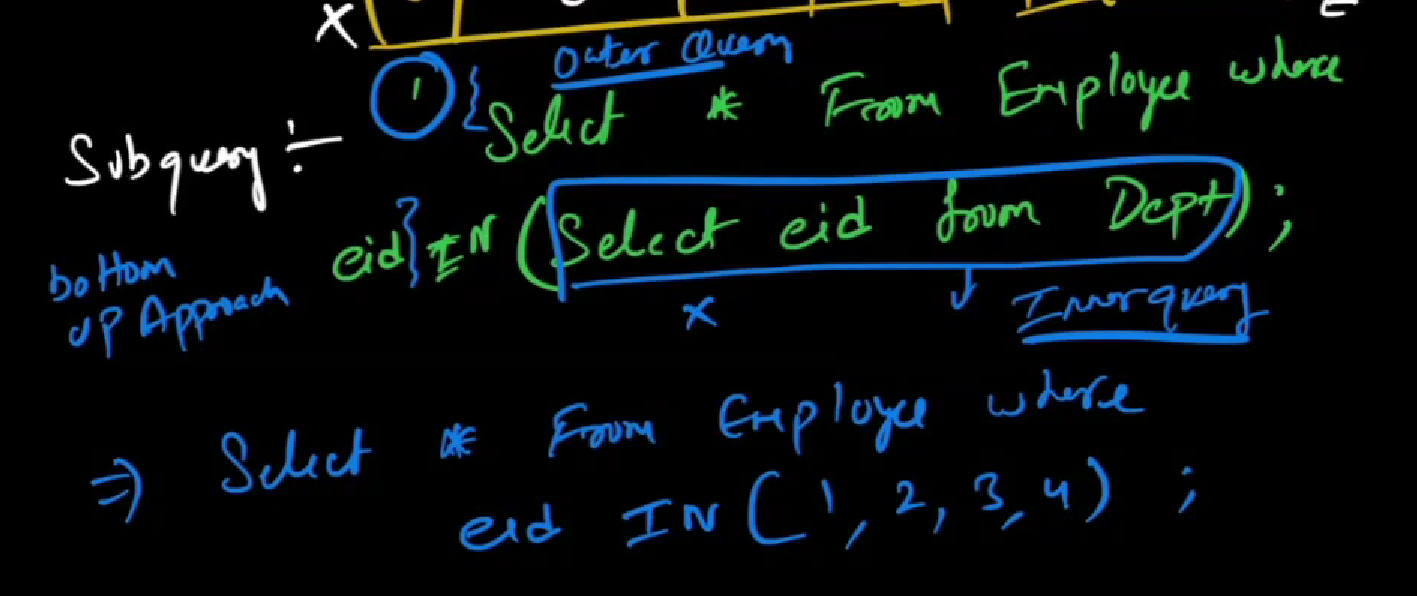 X
Outer Query
1 { Select * From Employee where
Subquery :-
eid} IN (Select eid from Dept) ;
bottom
up Approach
x
Innerquery
⇒ Select * From Employee where
eid IN (1, 2, 3, 4) ;